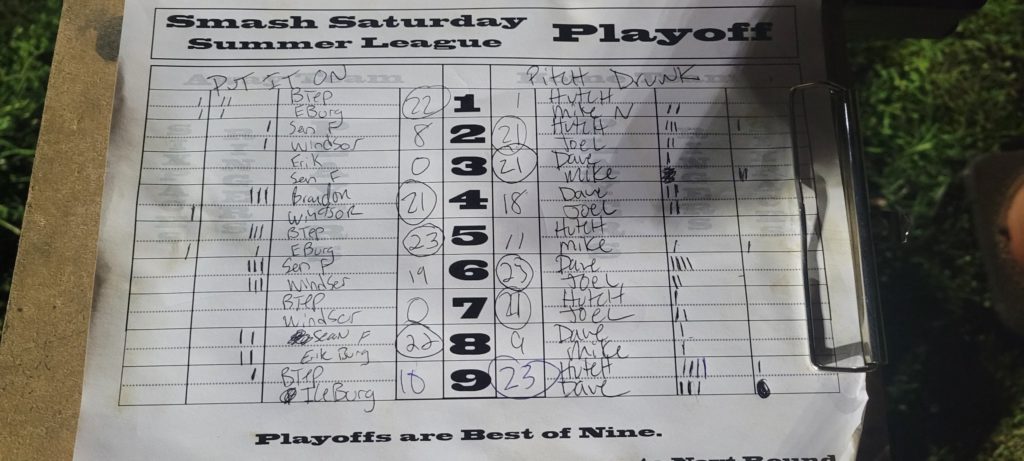 Smash Saturday
Summer League
Playoff
PUT IT ON Pitch Drunk
BTep 22 1 1 Hutch
EBurg Mike N
Sean F 8 2 21 Hutch
Windsor Joel
Erik 0 3 21 Dave
Sen F Mike
Brandon 21 4 18 Dave
Windsor Joel
BTep 23 5 11 Hutch
EBurg Mike
Sen F 19 6 23 Dave
Windser Joel
BTep 0 7 21 Hutch
Windser Joel
Sean F 22 8 9 Dave
Erik Burg Mike
BTep 10 9 23 Hutch
IceBurg Dave
Playoffs are Best of Nine.
to Next Round